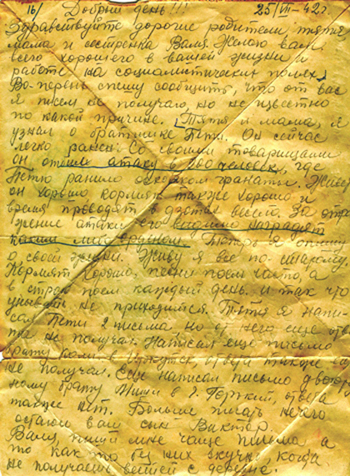 16/ Добрый день!!! 25/VII-42г.
Здравствуйте дорогие родители, тятя,
мама и сестренка Валя. Желаю вам
всего хорошего в вашей жизни и
работе на социалистических полях.
Во-первых спешу сообщить, что от вас
я писем не получаю, но не известно
по какой причине. Тятя и мама, я
узнал о братишке Пети. Он сейчас
легко ранен. Со своими товарищами
он атаку в 200 человек, где
Петю ранило осколком гранаты. Живет
он хорошо кормят также хорошо и
время проводят весело. За отра-
жение атаки его наградят
Теперь я опишу
о своей жизни. Живу я все по-старому.
Кормят хорошо. Песни поем часто, а
в строю поем каждый день. и так что
унывать не приходится. Тятя я напи-
сал Пети 2 письма но от него еще отве-
та не получал. Написал еще письмо
брату Коли в ответа также
не получал. Еще написал письмо двоюрод-
ному брату Мише в г. Горький, ответа
также нет. Больше писать нечего
остаюсь ваш сын Виктор.
Валя, пиши мне чаще письма а
то как то без них скучно, когда
не получаешь вестей с деревни.